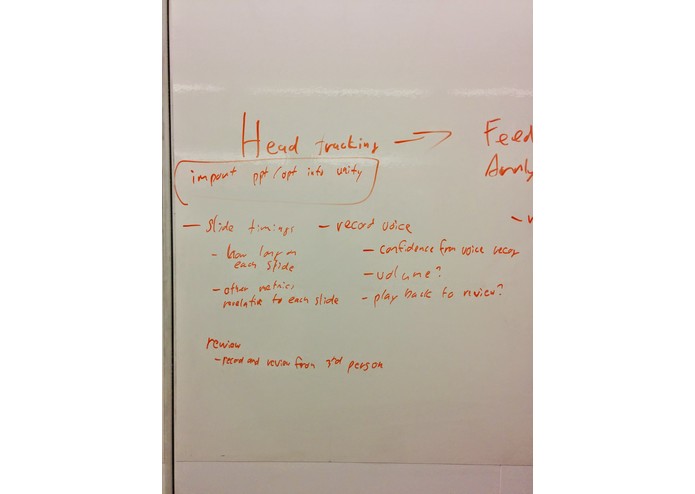 Head tracking → Feed
Analy
import ppt/opt into unity
— Slide timings
- how long on
each slide
- other metrics
relative to each slide
— record voice
- confidence from voice recog
- volume?
- play back to review?
review
- record and review from 3rd person